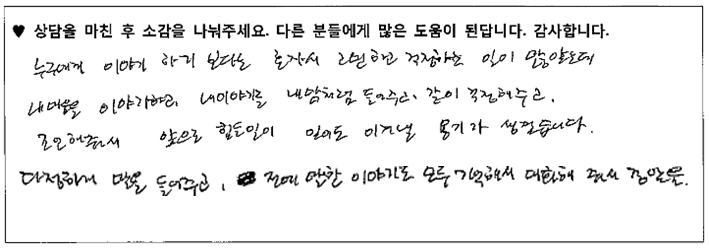 ♥ 상담을 마친 후 소감을 나눠주세요. 다른 분들에게 많은 도움이 된답니다. 감사합니다.
누구에게 이야기 하기 보다는 혼자서 고민하고 걱정하는 일이 많았는데
내마음을 이야기하고 내이야기를 내일처럼 들어주고, 같이 걱정해주고,
조언해주셔서 앞으로 힘든일이 있어도 이겨낼 용기가 생겼습니다.
다정하게 말을 들어주고, 전에 말한 이야기도 모두 기억해서 대화해 주셔서